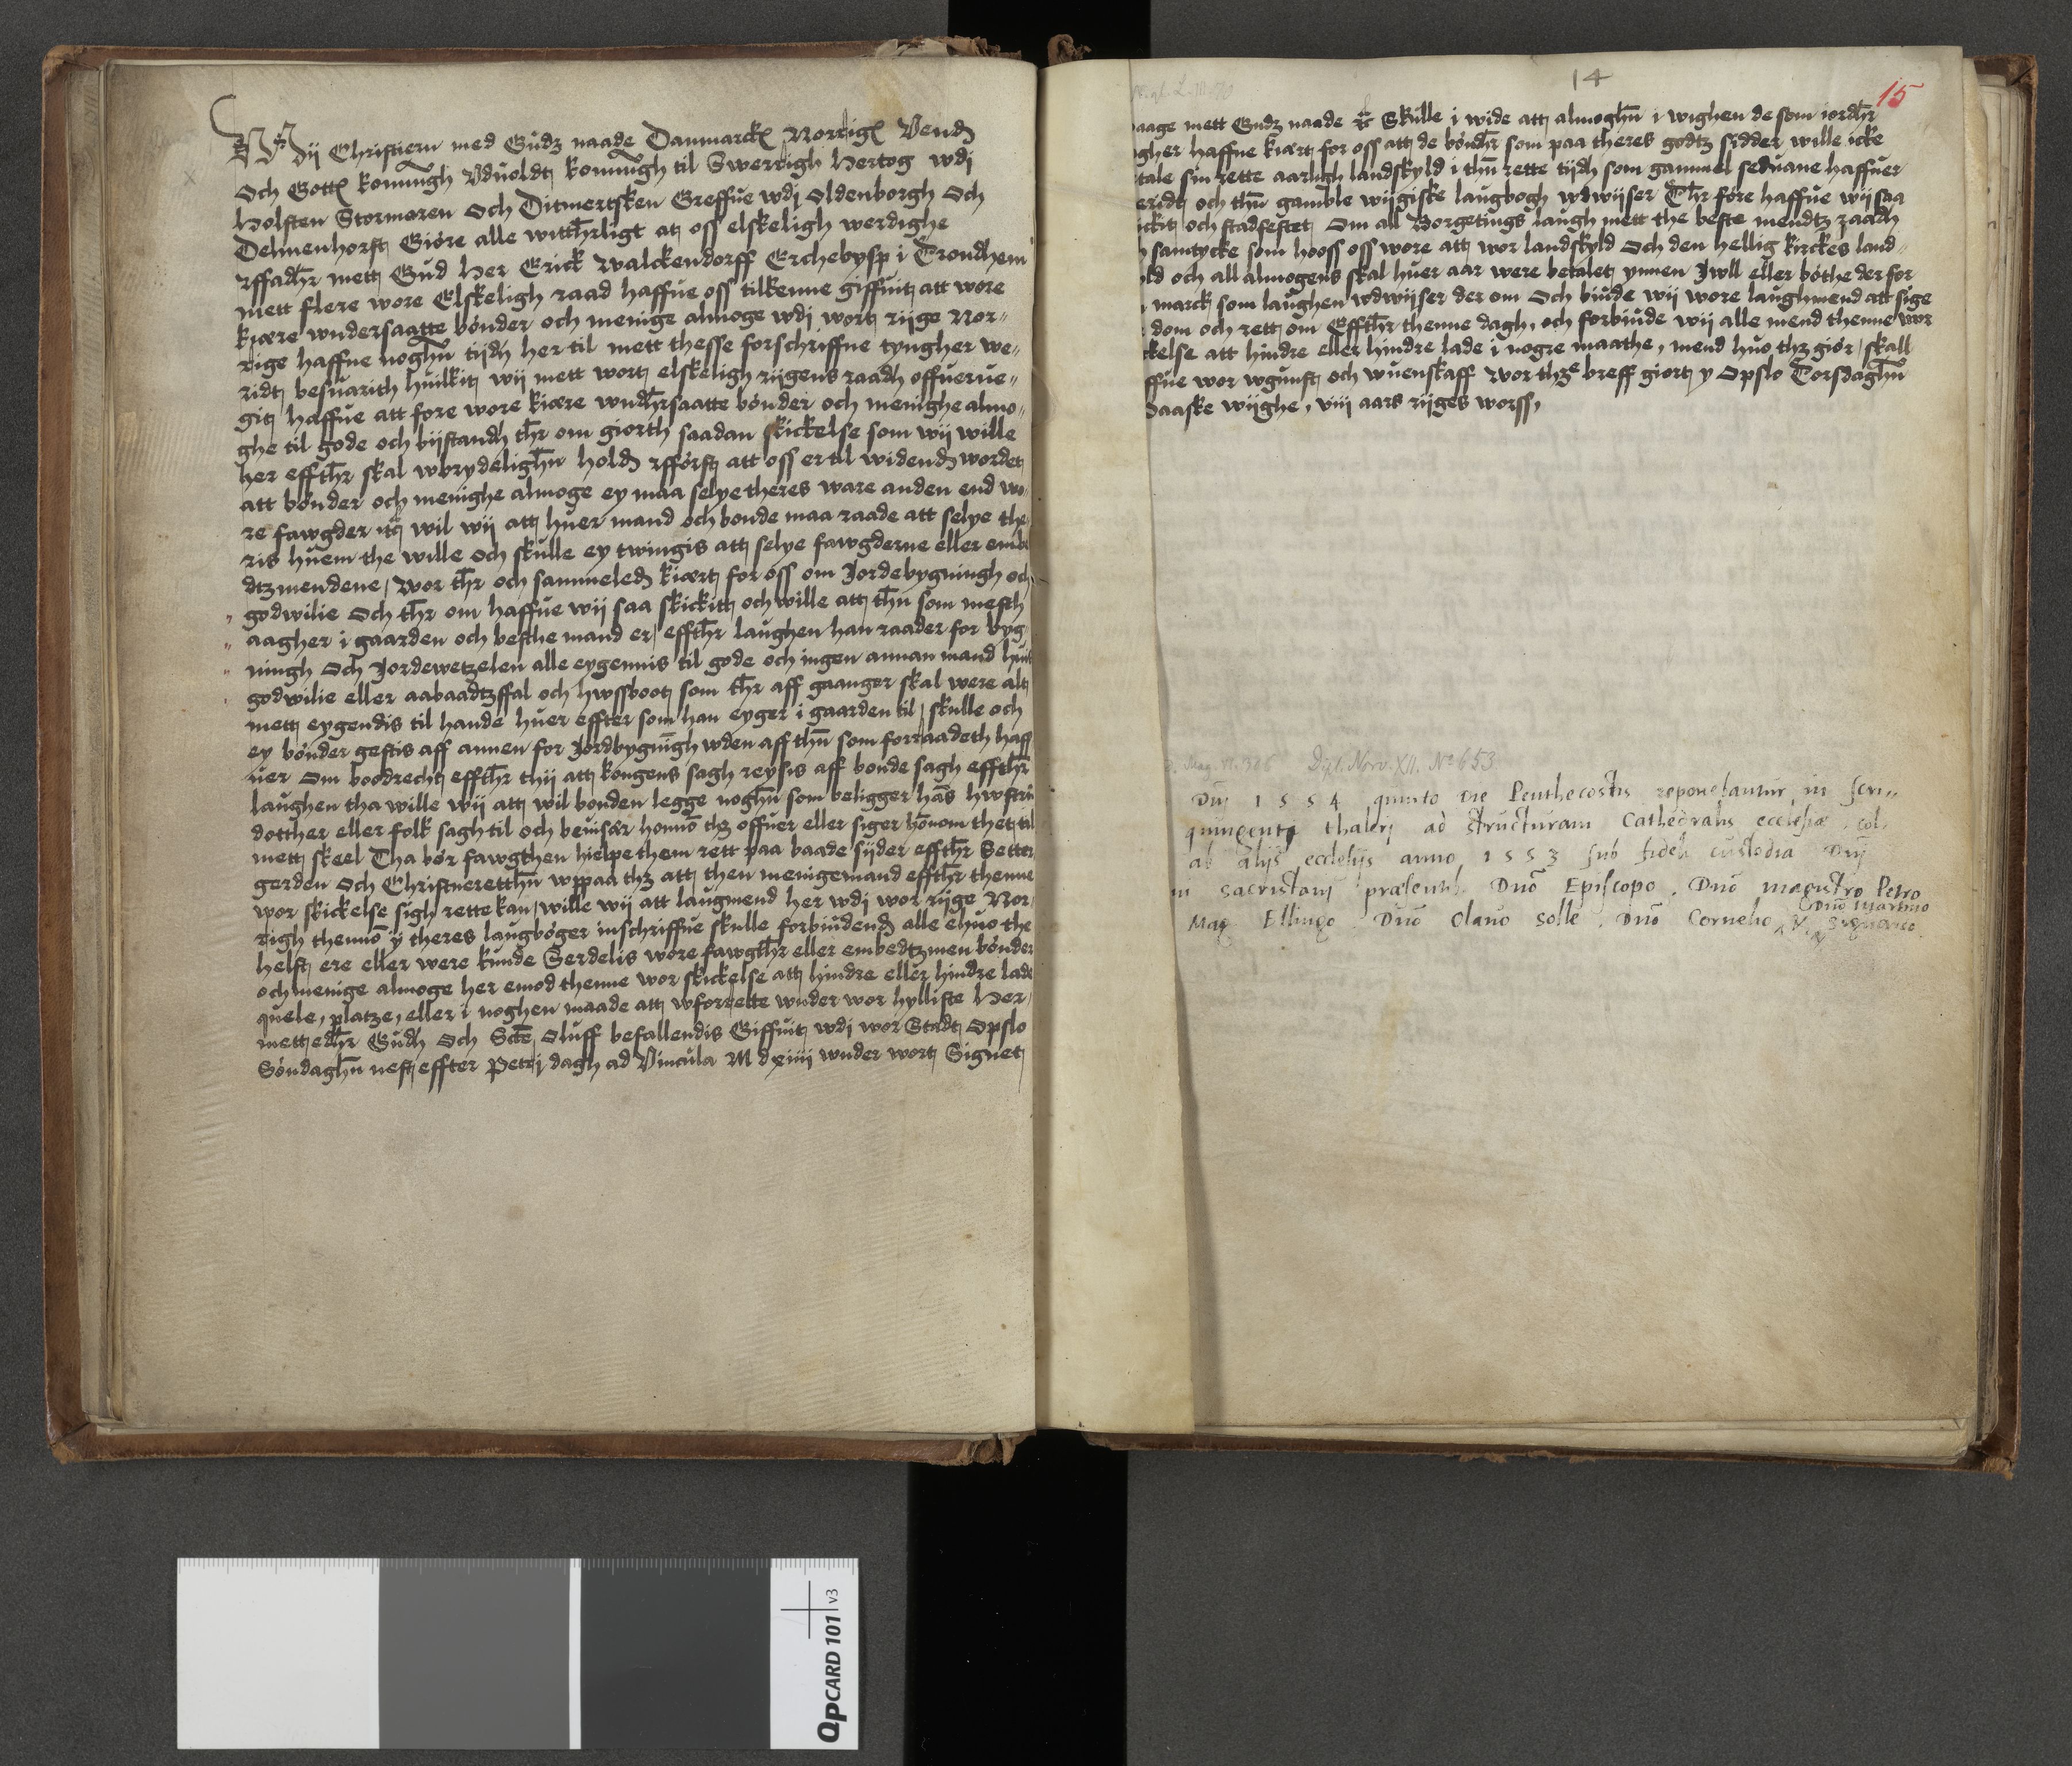 Wij Christiern med Gudz naade Danmarckꝭ Norrigꝭ Vendꝭ
Och Gottꝭ konnungh Vduoldt konnungh til Swerrigh Hertog wdj
Holsten Stormaren Och Ditmertsken Greffue wdj Oldenborgh Och
Delmenhorst Giöre alle witthr̄ligt at oss elskeligh werdighe
ffadhr̄ mett Gud Her Erick Walckendorff Erchebysp i Trondhem
mett flere wore Elskeligh raad haffue oss tilkenne giffuit att wore
kiære wndersaatte bönder och menige almoge wdj wort rijge Nor„
rige haffue noghn̄ tijdh her til mett thesse forschriffne tyngher we„
ridt besuarith huilkit wij mett wort elskeligh rijgens raadh offuerue„
git haffue att fore wore kiære wndhr̄saatte bönder och menighe almo„
ghe til gode och bijstandh thr̄ om giorth saadan skickelse som wij wille
her effthr̄ skal wbrydelighn̄ holdꝭ fförst att oss er til widendꝭ wordet
att bönder och menighe almoge ey maa selye theres ware anden end wo„
re fawgder wil wij att huer mand och bonde maa raade att selye the„
ris huem the wille och skulle ey twingis att selye fawgderne eller embe
dtzmendene / Wor thr̄ och sammeledꝭ kiært for oss om Jordebygningh och
godwilie Och thr̄ om haffue wij saa skickitt och wille att thn̄ som mesth
aagher i gaarden och besthe mand er / effthr̄ laughen han raader for byg
ningh Och Jordewetzelen alle eygennis til gode och ingen annan mand huis
godwilie eller aabaadtzffal och hwssboot som thr̄ aff gaanger skal were alt
mett eygendis til hande huer effter som han eyger i gaarden til / skulle och
ey bönder gestis aff annen for Jordbygnīgh wden aff thn̄ som forraadeth haff
uer Om boodrecht effthr̄ thij att kongens sagh reysis aff bonde sagh effthr̄
laughen tha wille wij att wil bonden legge noghn̄ som beligger hās hwstrw
dotther eller folk sagh til och beuisær honnō thz offuer eller siger hōnom thet til
mett skeel Tha bör fawgthen hielpe them rett paa baade sijder effthr̄ Setter
gerden Och Christneretthn̄ wppaa thz att then menigemand effthr̄ thenne
wor skickelse sigh rette kan / wille wij att laugmend her wdj wor rijge Nor„
righ thennō y theres laugböger inschriffue skulle forbiudendꝭ alle ehuo the
helst ere eller were kunde Serdelis wore fawgthr̄ eller embedtzmen bönder
och menige almoge her emod thenne wor skickelse att hindre eller hindre lade
quele, platze, eller i noghen maade att wforrette wnder wor hylliste Her„
mett edhr̄ Gudh Och Sctē Oluff befallendis Giffuit wdj wor Stadt Opslo
Söndaghn̄ nest effter Petrj dagh ad Vincula M d xiiii wnder wort Signet
14
15
aage mett Gudz naade ꝛc Skulle i wide att almoghn̄ i wighen de som iordhr̄
gher haffue kiært for oss att de böndhr̄ som paa theres godtz sidder wille icke
tale sin rette aarligh landskyld i thn̄ rette tijdh som gammel seduane haffuer
eridt och thn̄ gamble wijgiske laugbogh wdwijser Thr̄ före haffue wij saa
ickit och stadfestet Om all Borgetings laugh mett the beste mendtz raadh
samtycke som hooss oss wore att wor landskyld Och den hellig kirckes land„
ld och all almogens skal huer aar were betalet ynnen Jwll eller böthe der for
marck som laughen wdwijser der om Och biude wij wore laughmend att sige
dom och rett om Effthr̄ thenne dagh, och forbiude wij alle mend thenne wor
ckelse att hindre eller hindre lade i nogre maathe, mend huo thz giör / skall
ffue wor wgunst och wuenskaff Wor thzᵉ breff giort y Opslo Torsdaghn̄
Paaske wijghe, viij aars rijges worss,
Mag. VI. 326 Dipl. Norv. XII. No 653
Dnj 1554 quinto die Penthecostis reponebantur in scri„
quingentj thalerj ad structuram Cathedralis ecclesiæ col
ab alijs ecclesijs anno 1553 sub fideli custodia Dnj
in sacristani præsentib. Dnō Episcopo. Dnō magistro Petro
Mag Ellingo Dnō Olauo Solle. Dnō Cornelio
Dnō Martino